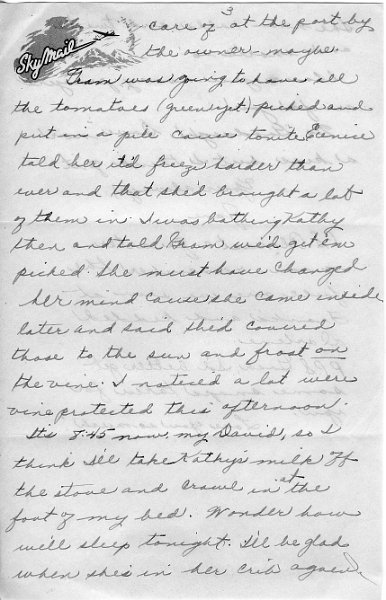 Sky Mail
3
care of at the port by
the owner - maybe
Gram was going to have all
the tomatoes (green yet) picked and
put in a pile cause tonite Eunice
told her it'd freeze harder than
ever and that she'd brought a lot
of them in. I was bathing Kathy
then and told Gram we'd get 'em
picked. She must have changed
her mind cause she came inside
later and said she'd covered
those to the sun and frost on
the vine. I noticed a lot were
vine protected this afternoon.
It's 8:45 now, my David, so I
think I'll take Kathy's milk off
the stove and crawl in at the
foot of my bed. Wonder how
we'll sleep tonight. I'll be glad
when she's in her crib again.